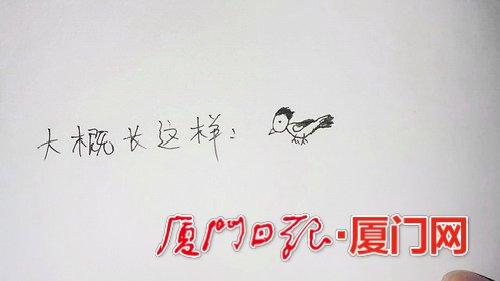 大概长这样：
厦门日报·厦门网